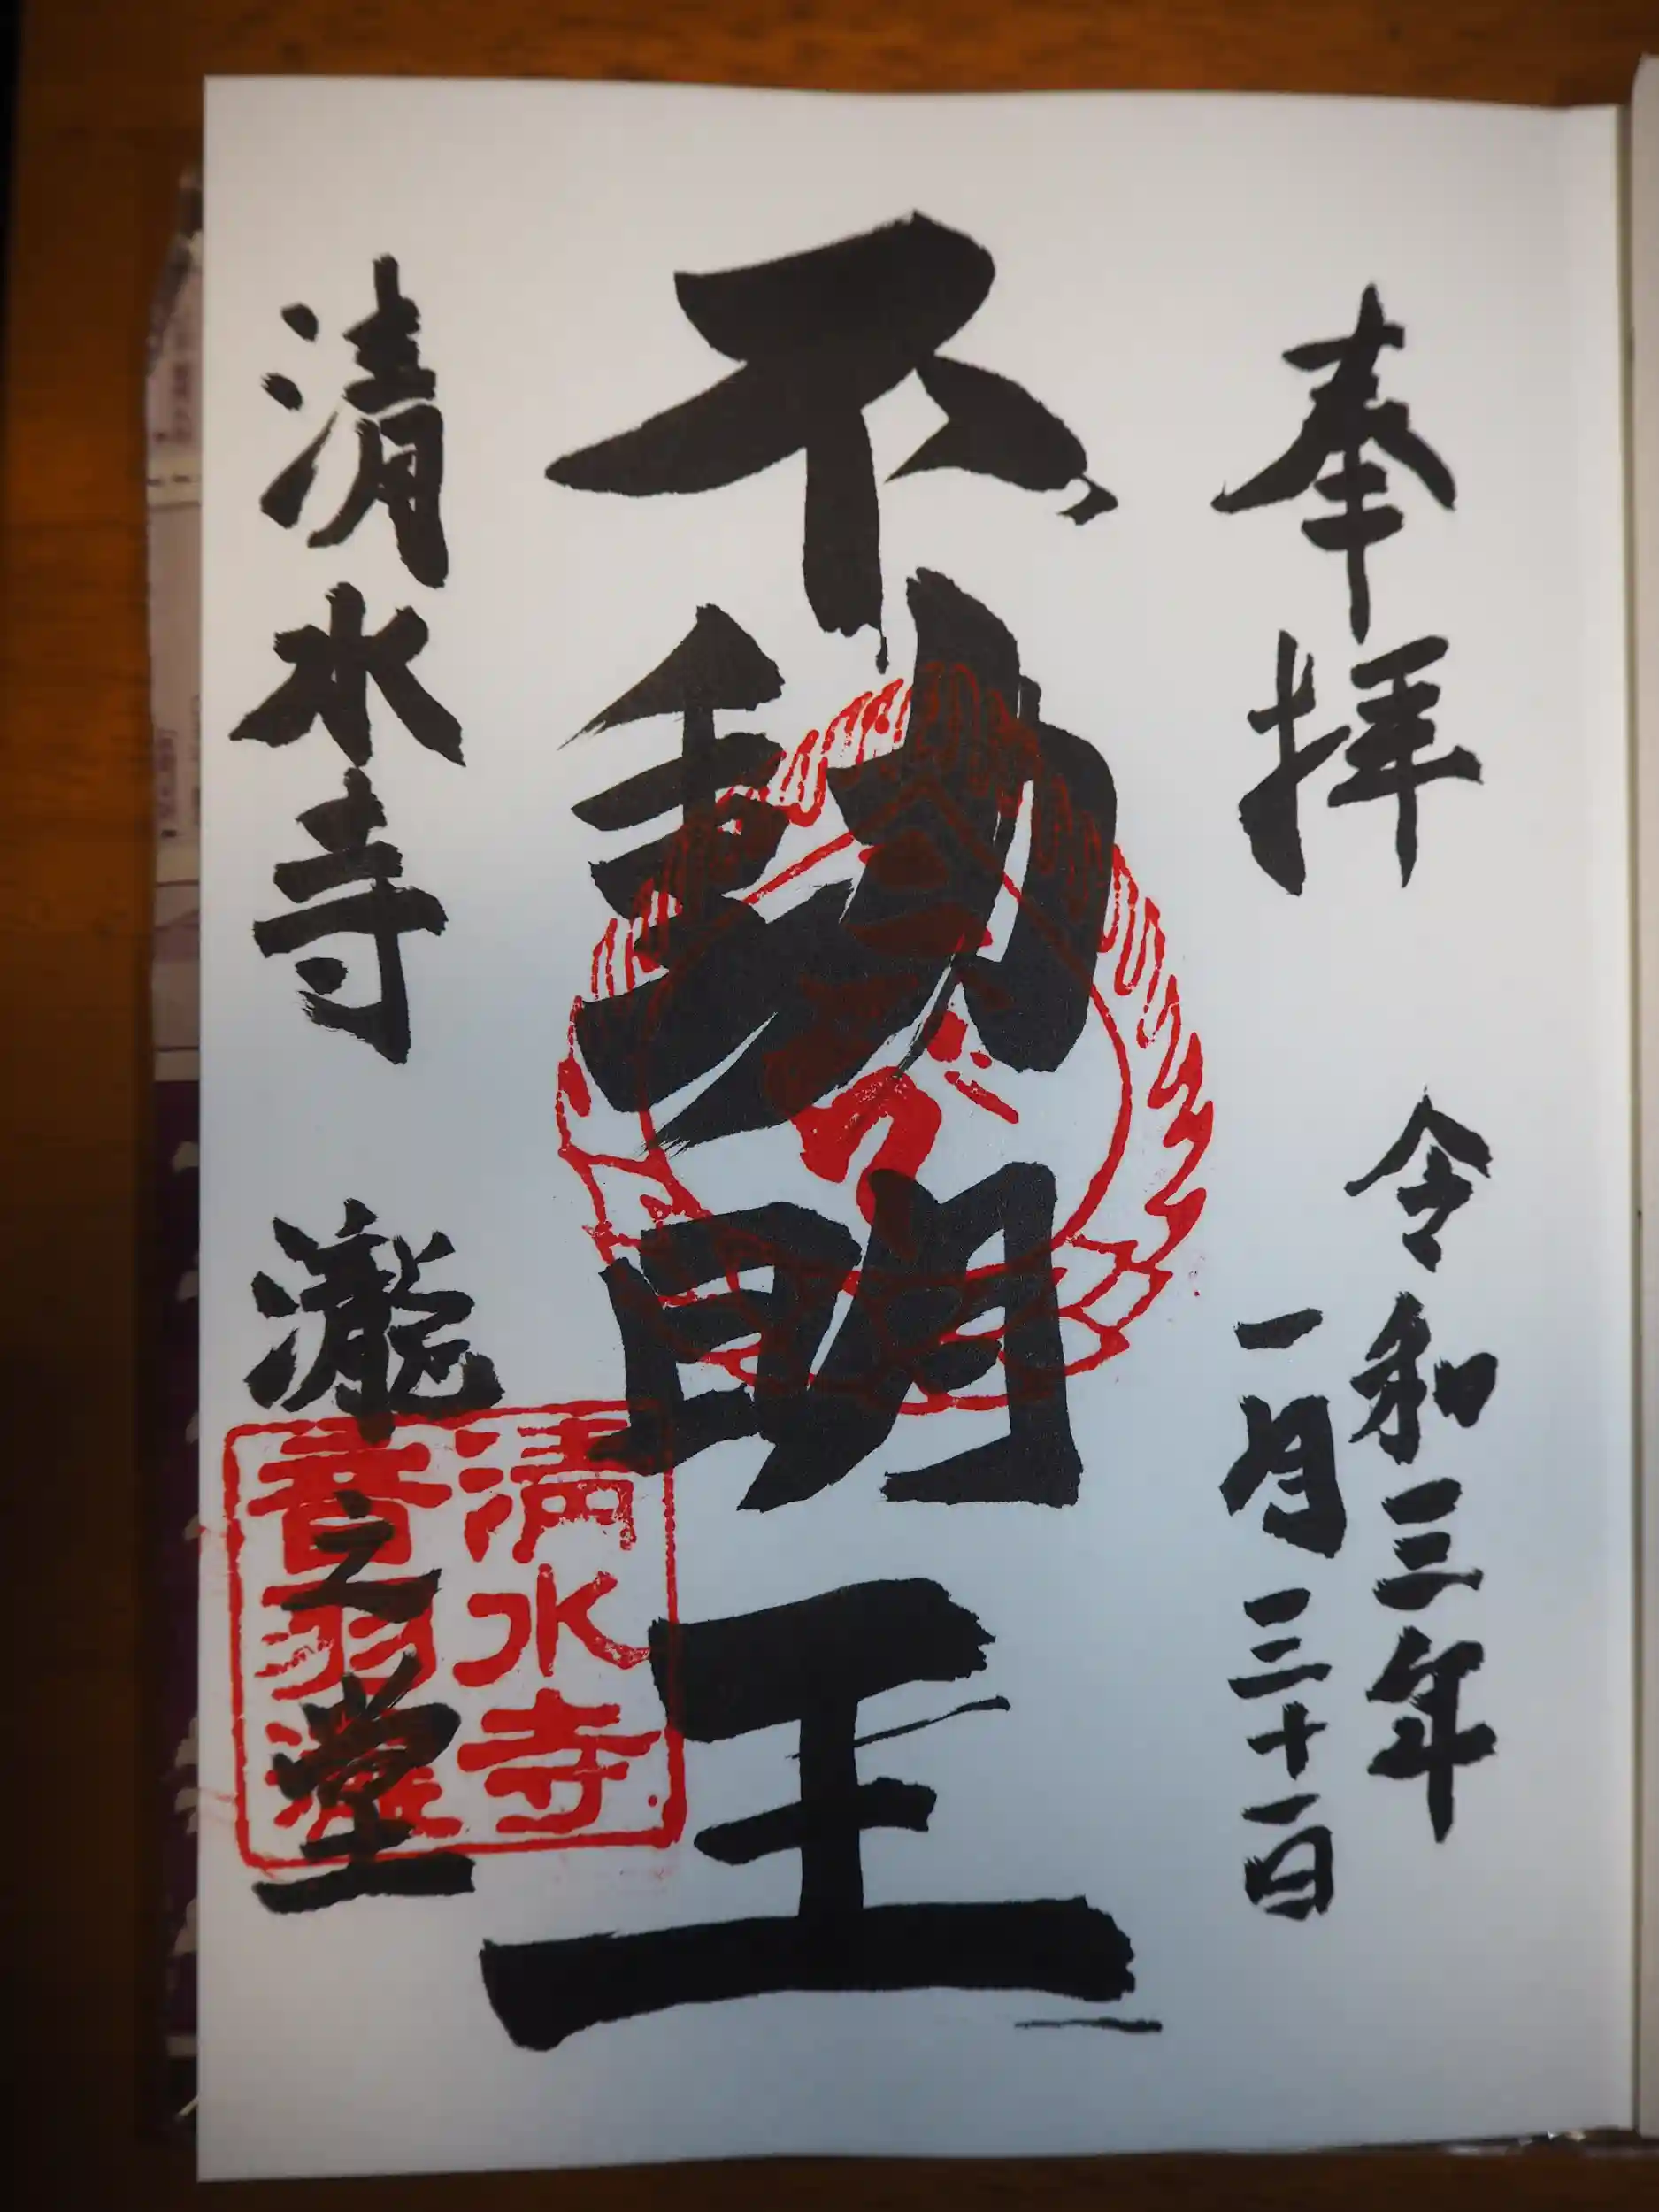 奉拝
令和三年
一月三十一日
不動明王
清水寺 瀧之堂
清水寺
音羽瀧